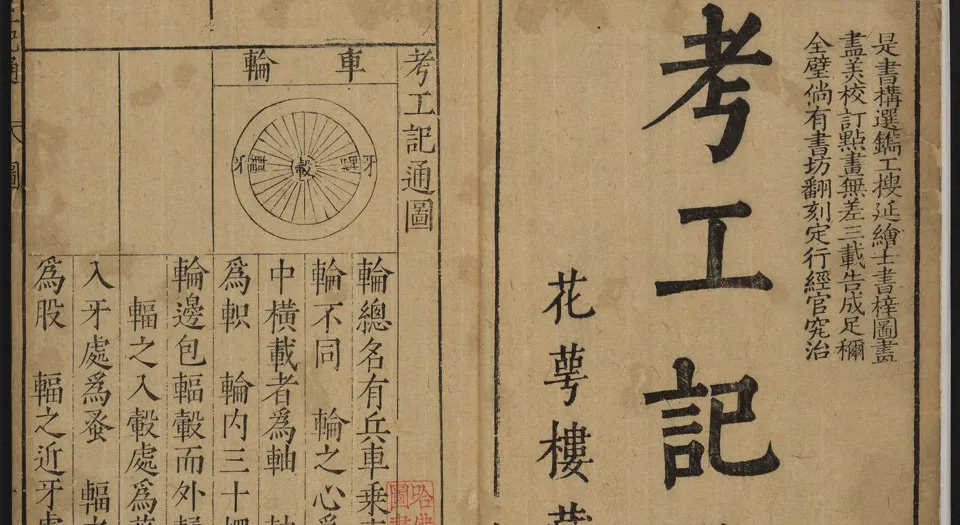 是書構選鐫工搜延繪士書榟圖畫
盡美校訂點畫無差三載告成足稱
全壁倘有書坊翻刻定行經官究治
考工記
花萼樓藏
考工記通圖
車輪
牙 輻 轂 輻 牙
輪總名有兵車乗
輪不同 輪之心為
中橫載者為軸
為軹 輪内三十
輪邊包輻轂而外
輻之入轂處為
入牙處為蚤 輻
為股 輻之近牙
哈佛
圖書